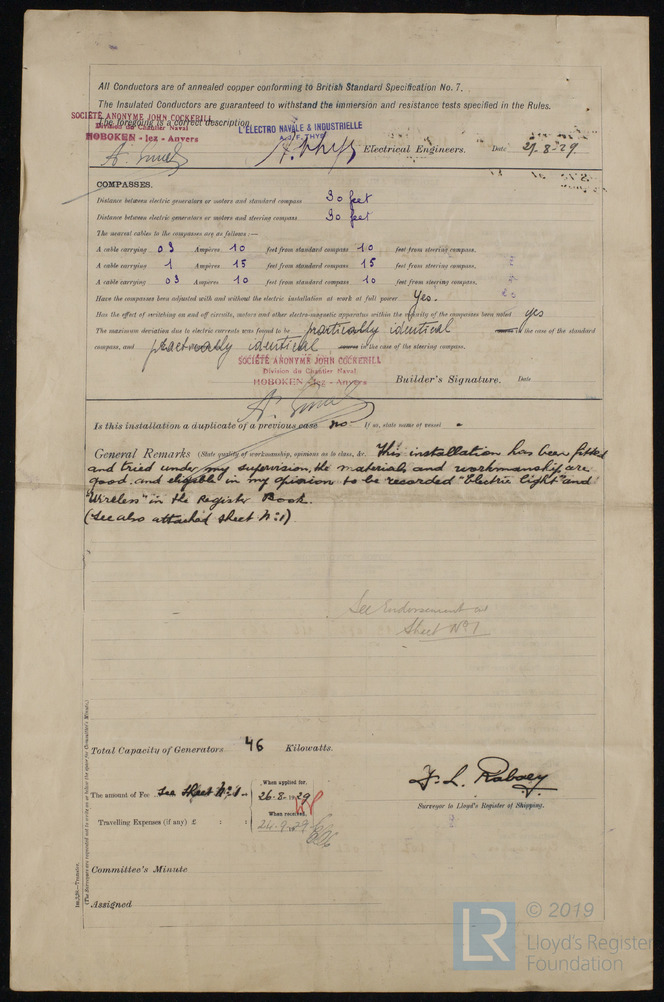 All Conductors are of annealed copper conforming to British Standard Specification No. 7.
The Insulated Conductors are guaranteed to withstand the immersion and resistance tests specified in the Rules.
The foregoing is a correct description.
SOCIÉTÉ ANONYME JOHN COCKERILL
Division du Chantier Naval
HOBOKEN - lez - Anvers
L'ÉLECTRO NAVALE & INDUSTRIELLE
A. & F. THYS
Electrical Engineers. Date 29-8-29.
COMPASSES.
Distance between electric generators or motors and standard compass 30 feet
Distance between electric generators or motors and steering compass 30 feet
The nearest cables to the compasses are as follows:—
A cable carrying 03 Ampères 10 feet from standard compass 10 feet from steering compass.
A cable carrying 1 Ampères 15 feet from standard compass 15 feet from steering compass.
A cable carrying 03 Ampères 10 feet from standard compass 10 feet from steering compass.
Have the compasses been adjusted with and without the electric installation at work at full power Yes.
Has the effect of switching on and off circuits, motors and other electro-magnetic apparatus within the vicinity of the compasses been noted yes
The maximum deviation due to electric currents was found to be practically identical in the case of the standard
compass, and practically identical in the case of the steering compass.
SOCIÉTÉ ANONYME JOHN COCKERILL
Division du Chantier Naval
HOBOKEN - lez - Anvers
Builder's Signature. Date
Is this installation a duplicate of a previous case no. If so, state name of vessel
General Remarks (State quality of workmanship, opinions as to class, &c. This installation has been fitted
and tried under my supervision, the materials and workmanship are
good, and eligible in my opinion to be recorded "Electric light" and
"Wireless" in the Register Book.
(See also attached sheet No:1)
See Endorsement on
Sheet No 1
Total Capacity of Generators 46 Kilowatts.
The amount of Fee See Sheet No:1.
When applied for,
26.8.1929
When received,
24.9.29
Travelling Expenses (if any) £ : :
F. L. Rabsey
Surveyor to Lloyd's Register of Shipping.
Committee's Minute
Assigned
© 2019
LR
Lloyd's Register
Foundation